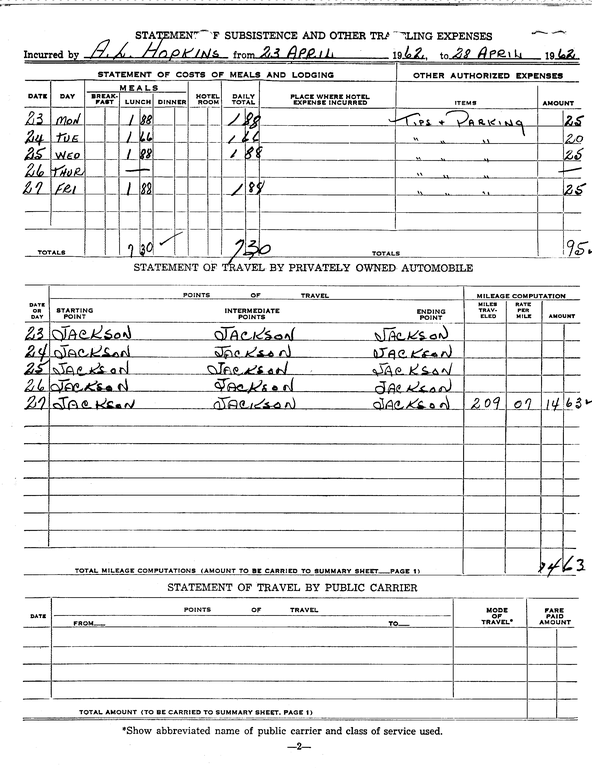 STATEMENT OF SUBSISTENCE AND OTHER TRAVELING EXPENSES
Incurred by A. L. HOPKINS from 23 APRIL 1962, to 28 APRIL 1962
STATEMENT OF COSTS OF MEALS AND LODGING OTHER AUTHORIZED EXPENSES
DATE DAY MEALS BREAK-FAST LUNCH DINNER HOTEL ROOM DAILY TOTAL PLACE WHERE HOTEL EXPENSE INCURRED ITEMS AMOUNT
23 MON 1 88 1 88 TIPS & PARKING 25
24 TUE 1 66 1 66 " " " 20
25 WED 1 88 1 88 " " " 25
26 THUR — " " " —
27 FRI 1 88 1 88 " " " 25
TOTALS 7 30 ✓ 7 30 TOTALS 95 ✓
STATEMENT OF TRAVEL BY PRIVATELY OWNED AUTOMOBILE
POINTS OF TRAVEL MILEAGE COMPUTATION
DATE OR DAY STARTING POINT INTERMEDIATE POINTS ENDING POINT MILES TRAV-ELED RATE PER MILE AMOUNT
23 JACKSON JACKSON JACKSON
24 JACKSON JACKSON JACKSON
25 JACKSON JACKSON JACKSON
26 JACKSON JACKSON JACKSON
27 JACKSON JACKSON JACKSON 209 07 14 63 ✓
TOTAL MILEAGE COMPUTATIONS (AMOUNT TO BE CARRIED TO SUMMARY SHEET—PAGE 1) 14 63
STATEMENT OF TRAVEL BY PUBLIC CARRIER
DATE POINTS OF TRAVEL MODE OF TRAVEL* FARE PAID AMOUNT
FROM— TO—
TOTAL AMOUNT (TO BE CARRIED TO SUMMARY SHEET. PAGE 1)
*Show abbreviated name of public carrier and class of service used.
—2—